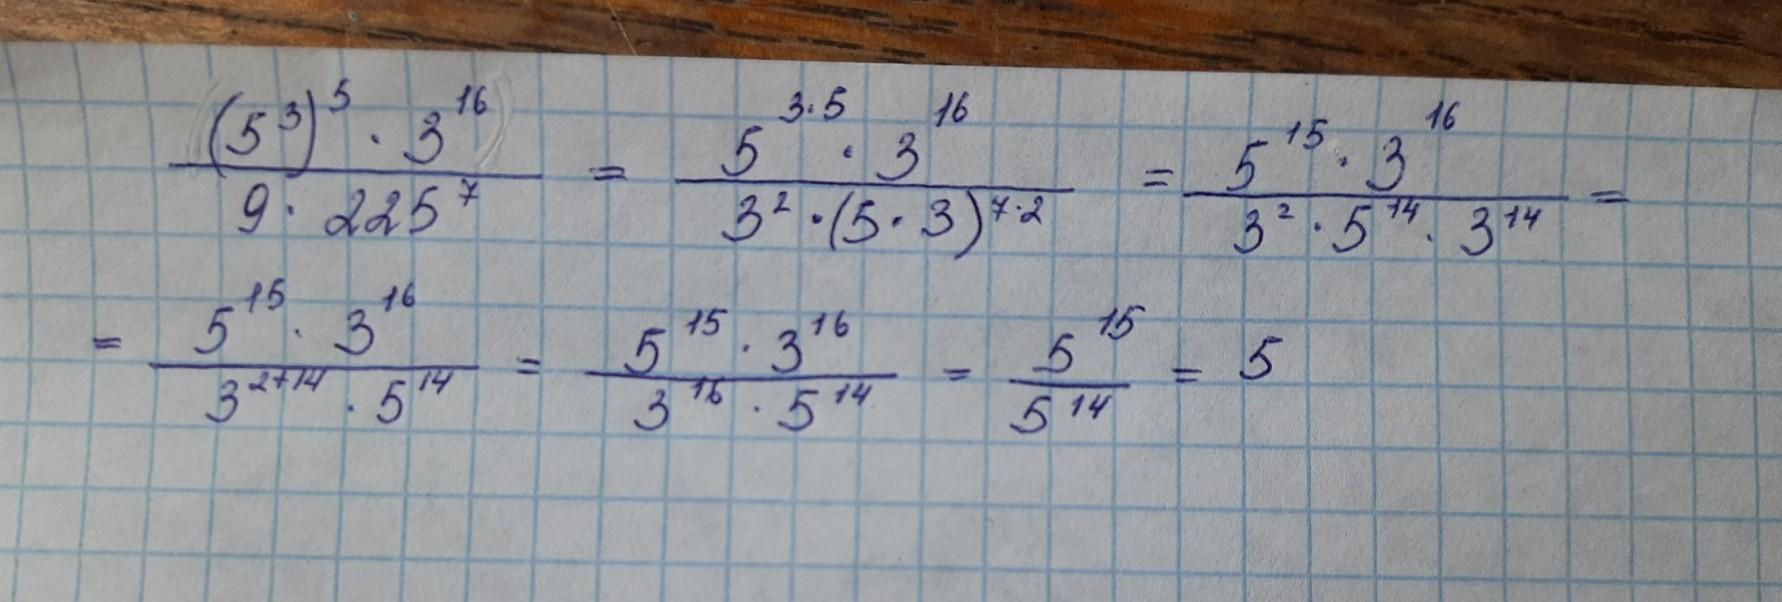 \frac{(5^3)^5 \cdot 3^{16}}{9 \cdot 225^7} = \frac{5^{3 \cdot 5} \cdot 3^{16}}{3^2 \cdot (5 \cdot 3)^{7 \cdot 2}} = \frac{5^{15} \cdot 3^{16}}{3^2 \cdot 5^{14} \cdot 3^{14}} =
= \frac{5^{15} \cdot 3^{16}}{3^{2+14} \cdot 5^{14}} = \frac{5^{15} \cdot 3^{16}}{3^{16} \cdot 5^{14}} = \frac{5^{15}}{5^{14}} = 5